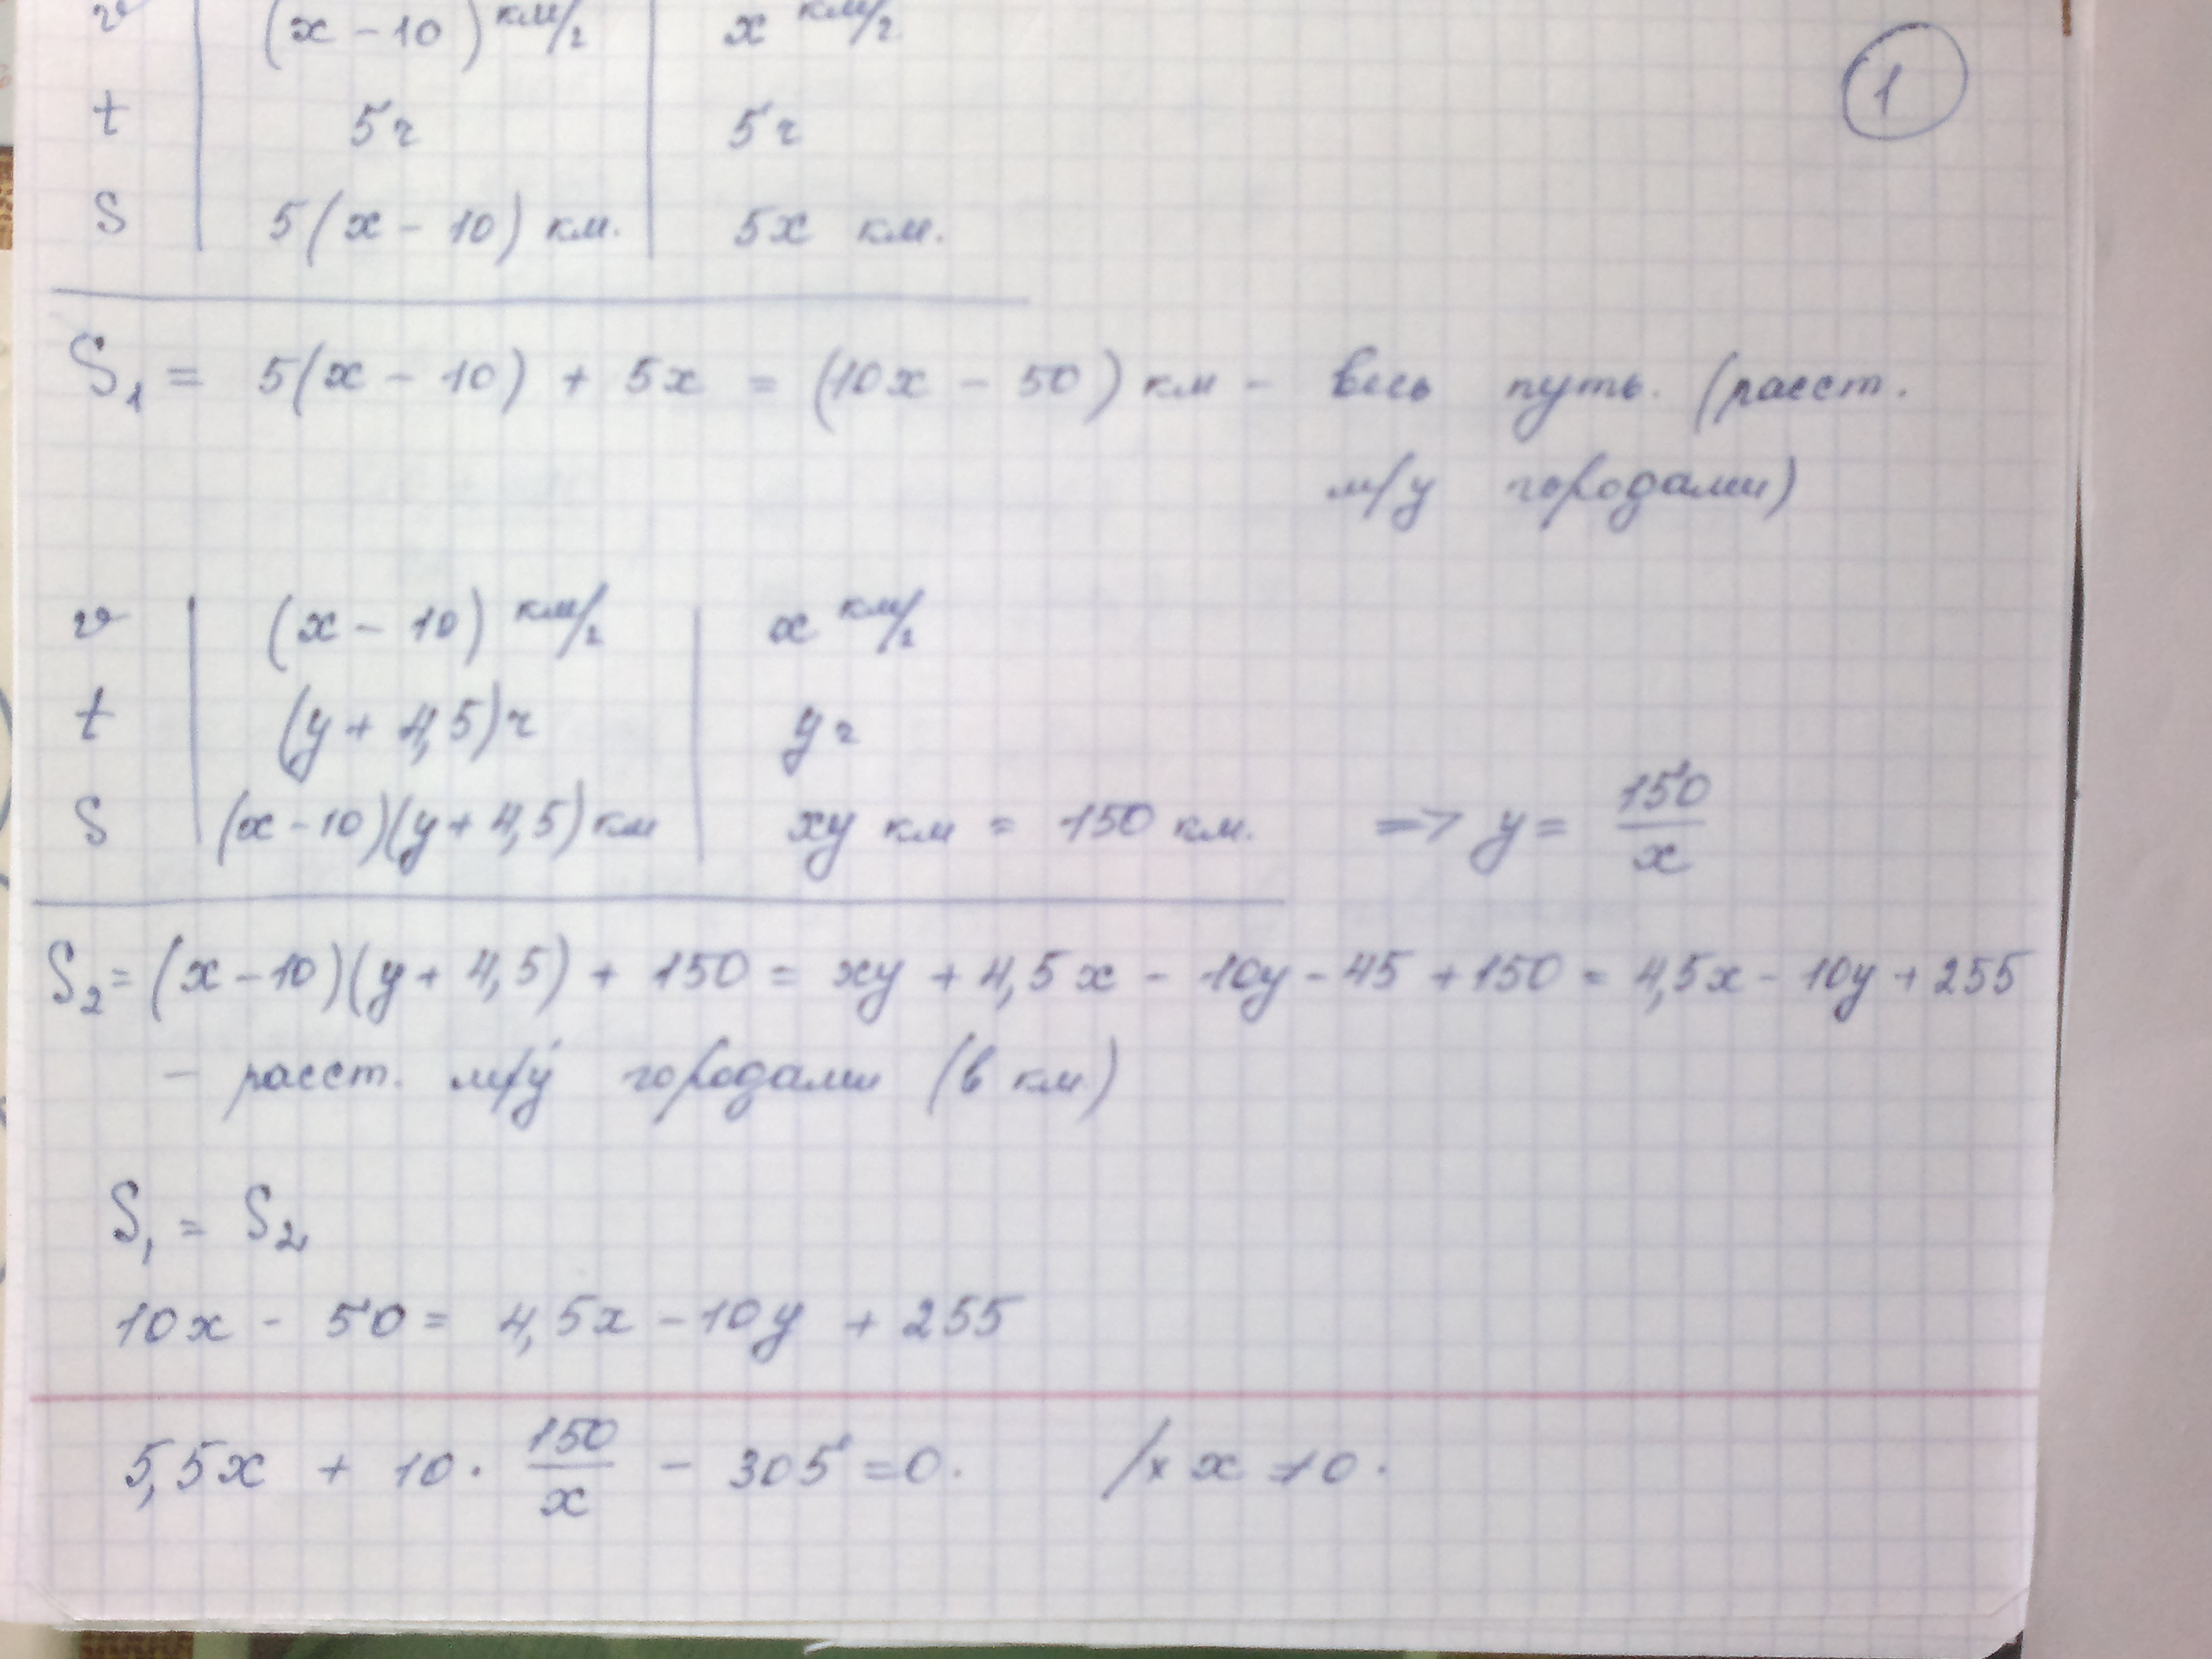 v | (x – 10) км/ч | x км/ч
1
t | 5ч | 5ч
S | 5(x – 10) км. | 5x км.
S₁ = 5(x – 10) + 5x = (10x – 50) км – весь путь. (расст.
м/у городами)
v | (x – 10) км/ч | x км/ч
t | (y + 4,5)ч | yч
S | (x – 10)(y + 4,5) км | xy км = 150 км. => y = 150/x
S₂ = (x – 10)(y + 4,5) + 150 = xy + 4,5x – 10y – 45 + 150 = 4,5x – 10y + 255
– расст. м/у городами (в км)
S₁ = S₂
10x – 50 = 4,5x – 10y + 255
5,5x + 10 · 150/x – 305 = 0. /× x ≠ 0.